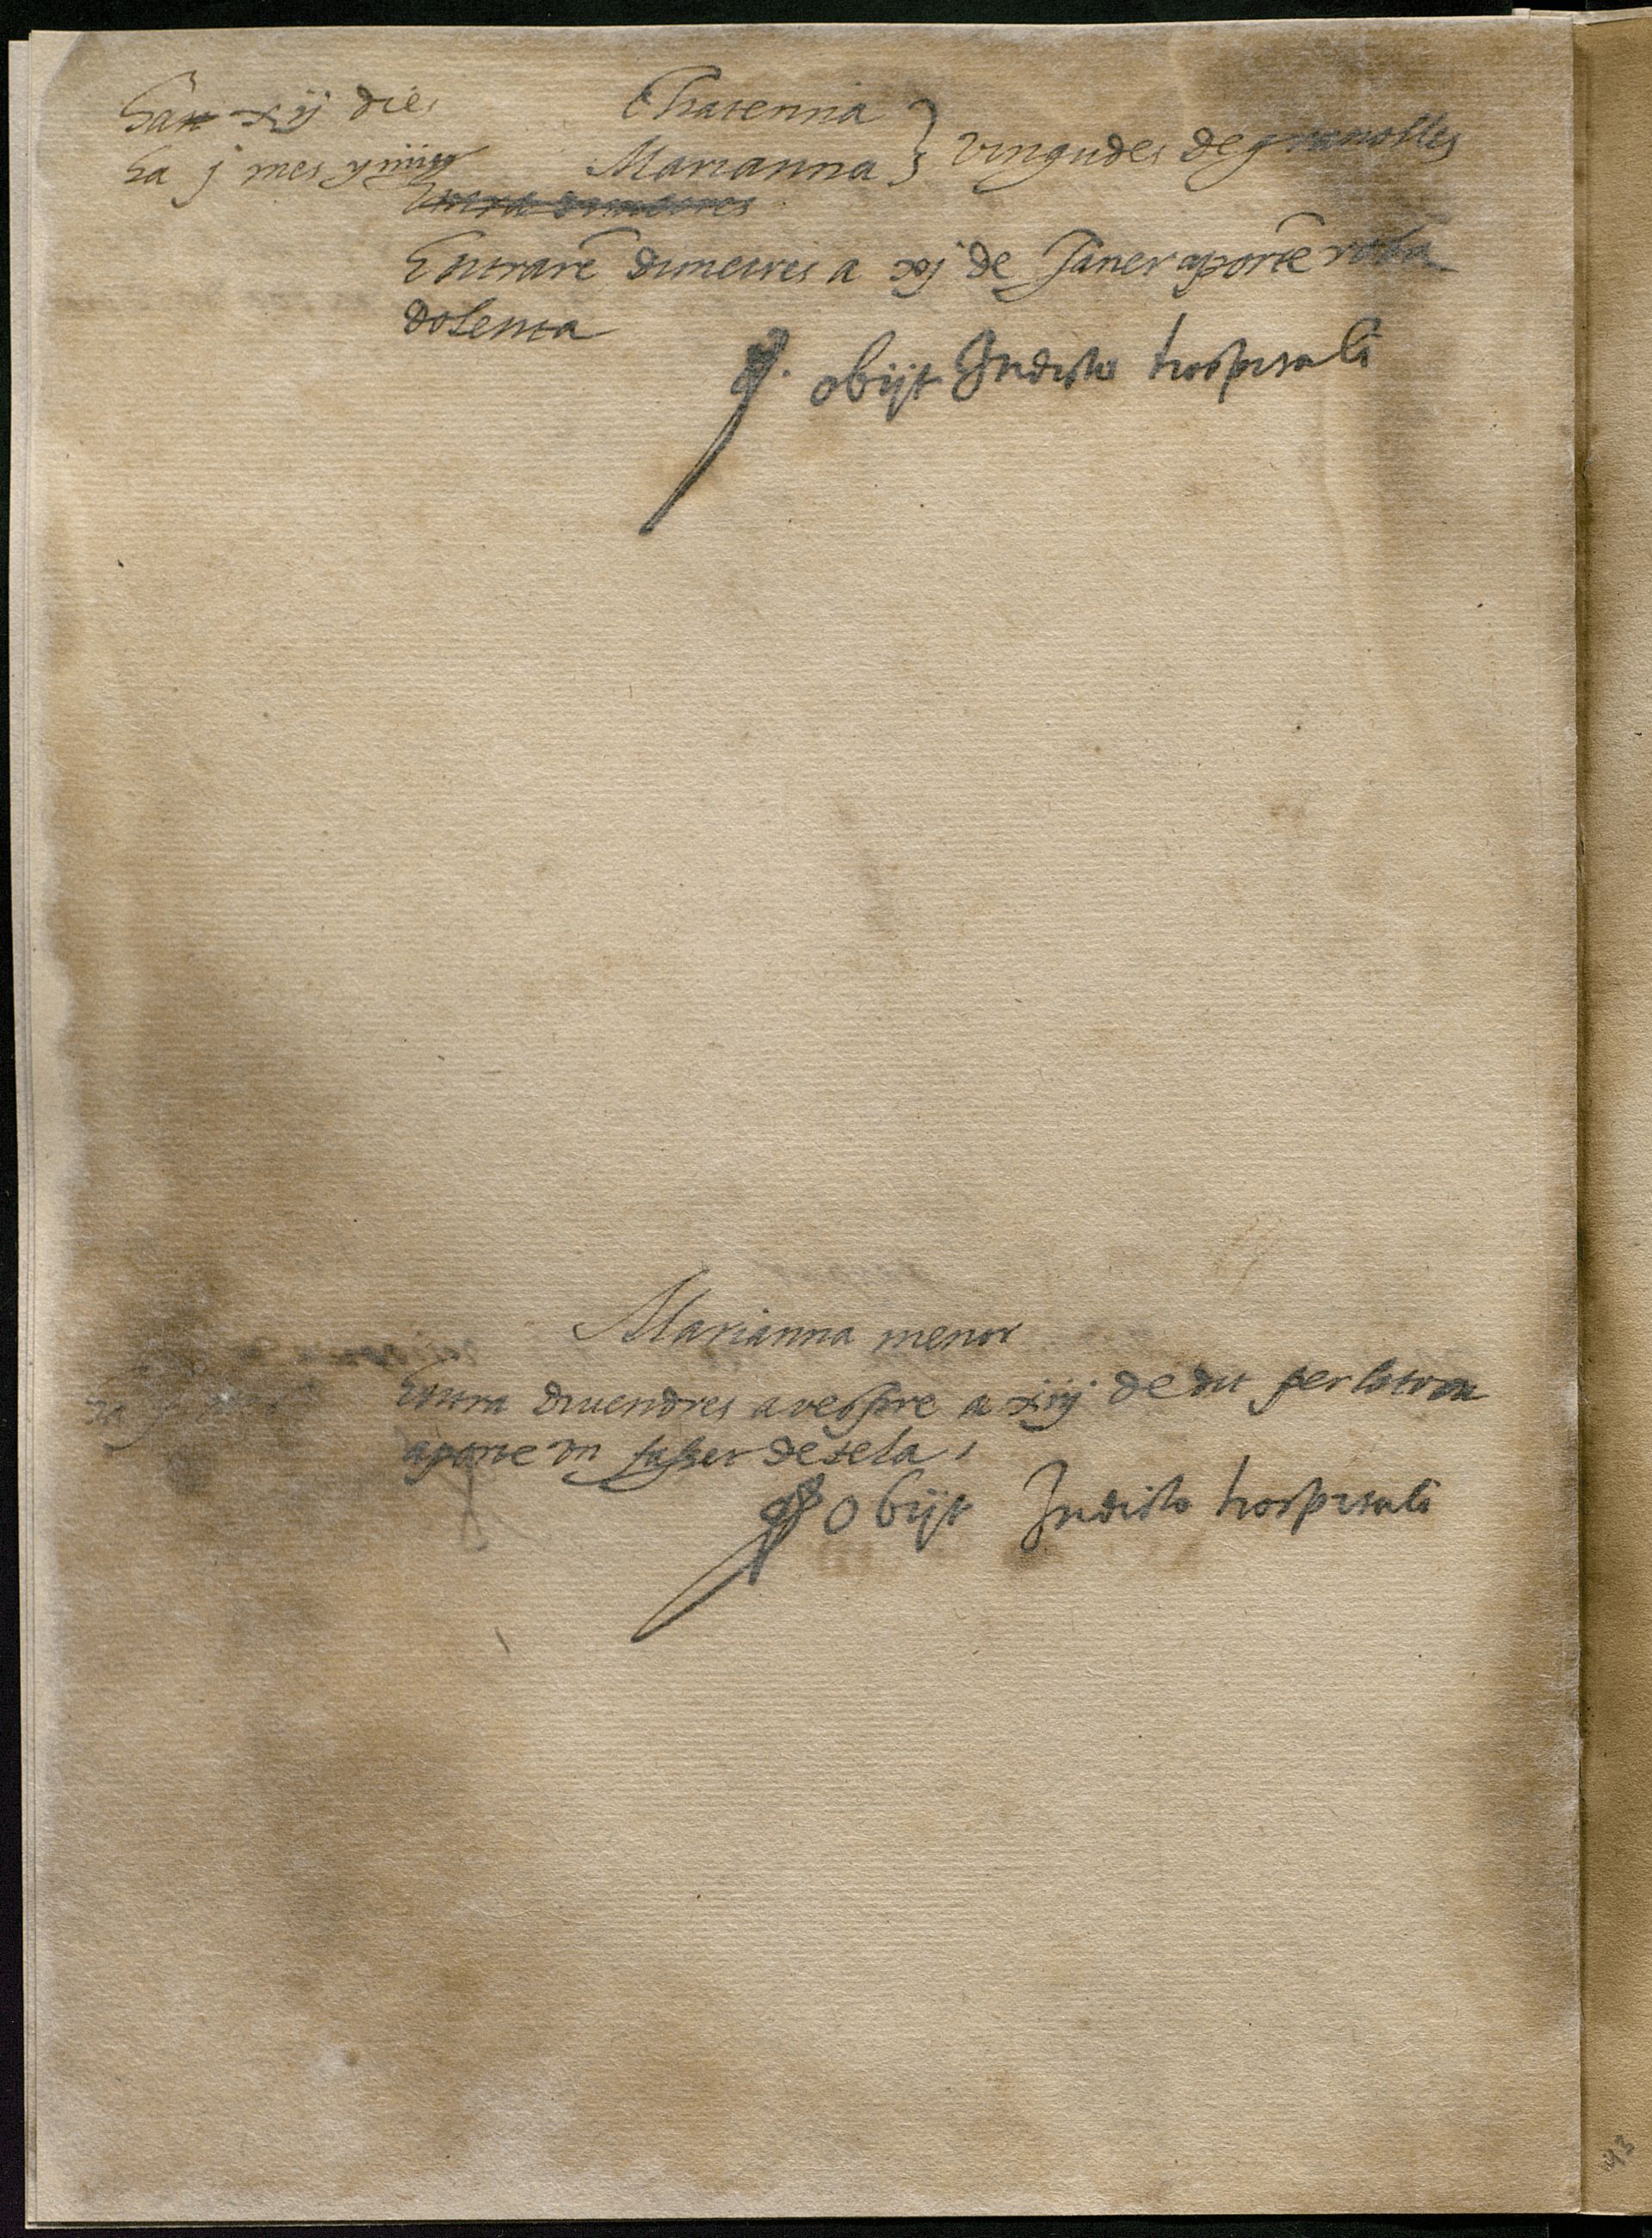 ha xij dies Chaterina
ha j mes y Marianna } vingudes de granolles
Entraren dimecres a xvj de Janer aporten roba
dolenta
obijt In dicto hospitali
Marianna menor
Entra diuendres a vespre a xiij de dit per lo torn
aporte vn de tela
obijt In dicto hospitali